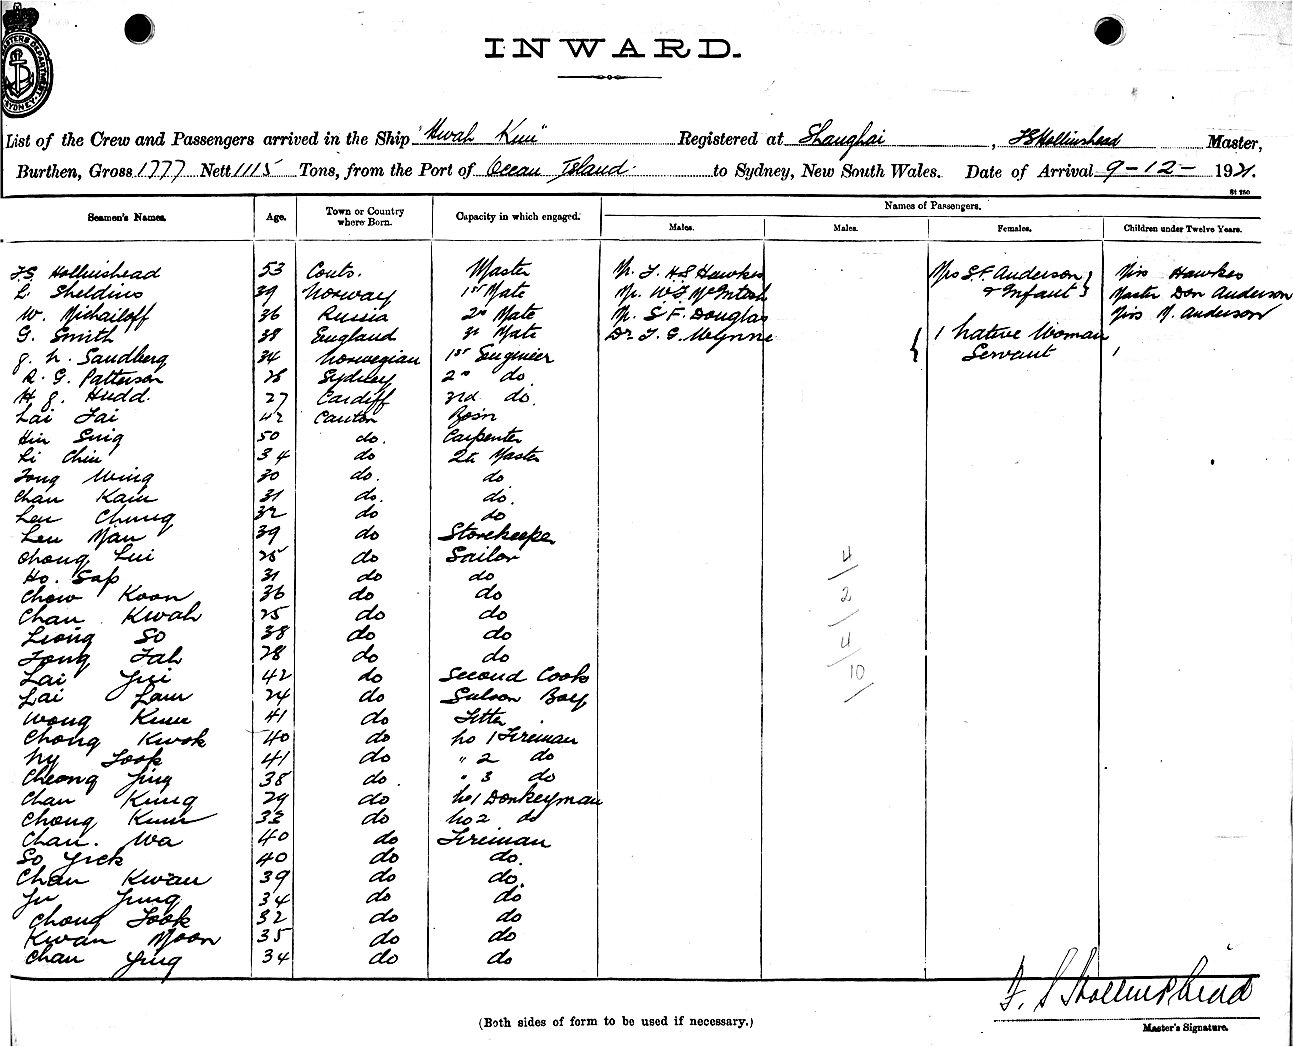 INWARD.
List of the Crew and Passengers arrived in the Ship "Hwah Kui" Registered at Shanghai, F S Hollinshead Master,
Burthen, Gross 1777 Nett 1115 Tons, from the Port of Ocean Island to Sydney, New South Wales. Date of Arrival 9-12-1921.
Seamen's Names. Age. Town or Country where Born. Capacity in which engaged. Names of Passengers.
Males. Males. Females. Children under Twelve Years.
F.S. Hollinshead 53 Master Mr. F. H S Hawkes Mrs S.F. Anderson } Miss Hawkes
L. 39 Norway 1st Mate Mr. W F McIntosh & Infant } Master Don Anderson
W. Michailoff 36 Russia 2nd Mate Mr. S F. Douglas Miss N. Anderson
G. Smith 38 England 3rd Mate Dr. F. G. Wynne { 1 Native Woman
J. N. Sandberg 34 Norwegian 1st Engineer Servant 1
R. G. Patterson 28 Sydney 2nd do.
H J. Hudd. 27 Cardiff 3rd do.
Lai Fai 42 Canton Bos'n
Hin Sing 50 do. Carpenter
Li Chiu 34 do Qtr Master
Fong Wing 30 do. do
Chan Kam 31 do. do.
Leu Chung 32 do do
Leu Man 39 do Storekeeper
Chong Lui 25 do Sailor
Ho. Sap 31 do do
Chow Koon 36 do do
Chan Kwah 25 do do
Leong So 38 do do
Fong Fah 28 do do
Lai Yui 42 do Second Cook
Lai Lam 24 do Saloon Boy
Wong Kum 41 do Fitter
Chong Kwok 40 do No 1 Fireman
Ny Fook 41 do " 2 do
Cheong Jing 38 do. " 3 do
Chan Kung 29 do No 1 Donkeyman
Chong Kum 33 do No 2 do
Chan. Wa 40 do Fireman
So Yick 40 do do.
Chan Kwan 39 do do.
Yu Yung 34 do do
Chong Fook 32 do do
Kwan Moon 35 do do
Chan Ying 34 do do
4
2
4
10
F. S Hollinshead
(Both sides of form to be used if necessary.)
Master's Signature.